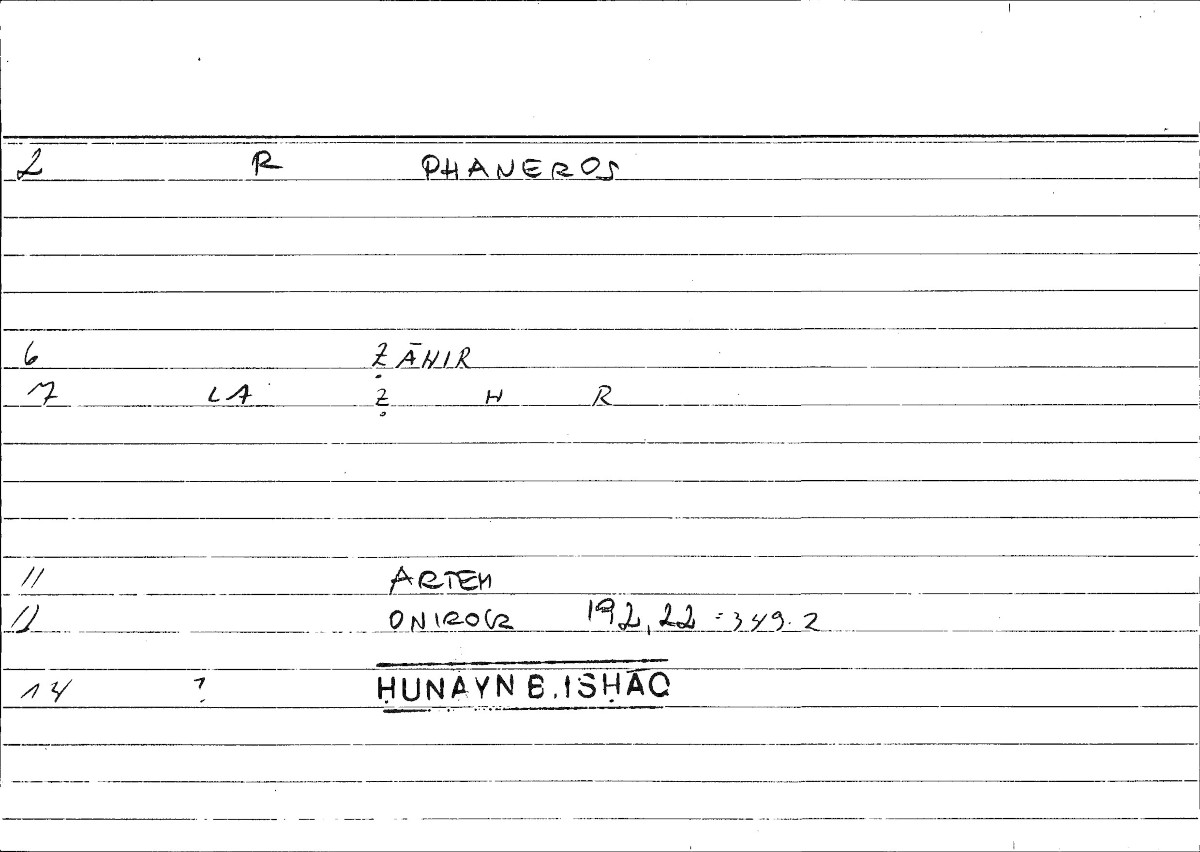 2 R PHANEROS
6 ẒĀHIR
7 LA Ẓ H R
11 ARTEM
12 ONIROCR 192,22 = 349.2
14 ? ḤUNAYN B. ISḤĀQ